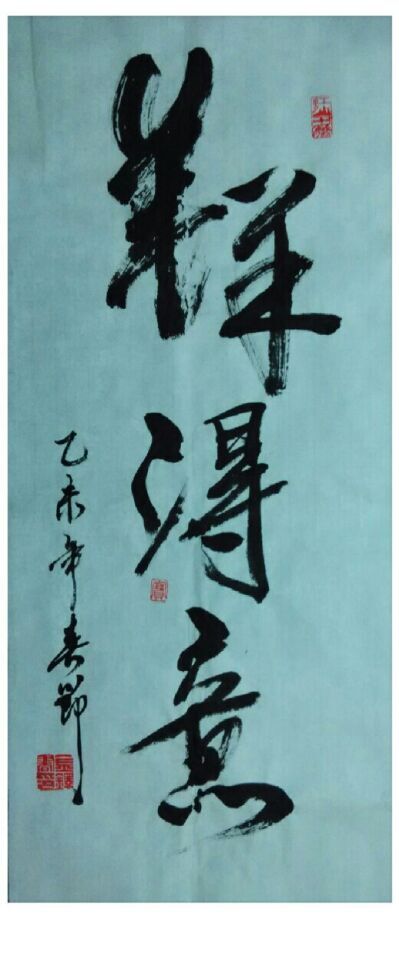 羊羊得意
乙未年春節